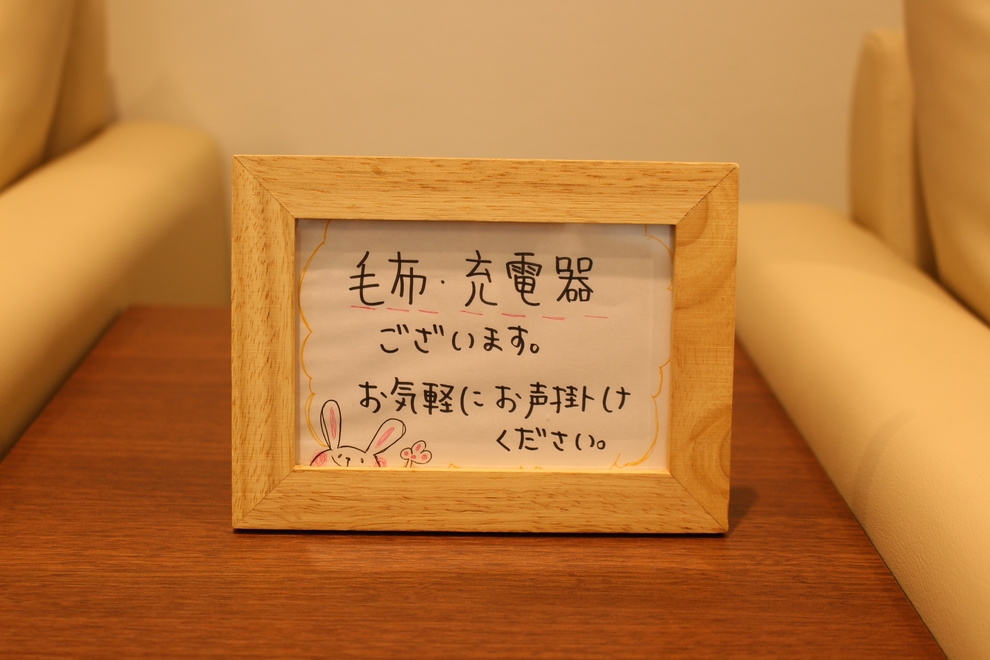 毛布・充電器
ございます。
お気軽にお声掛け
ください。